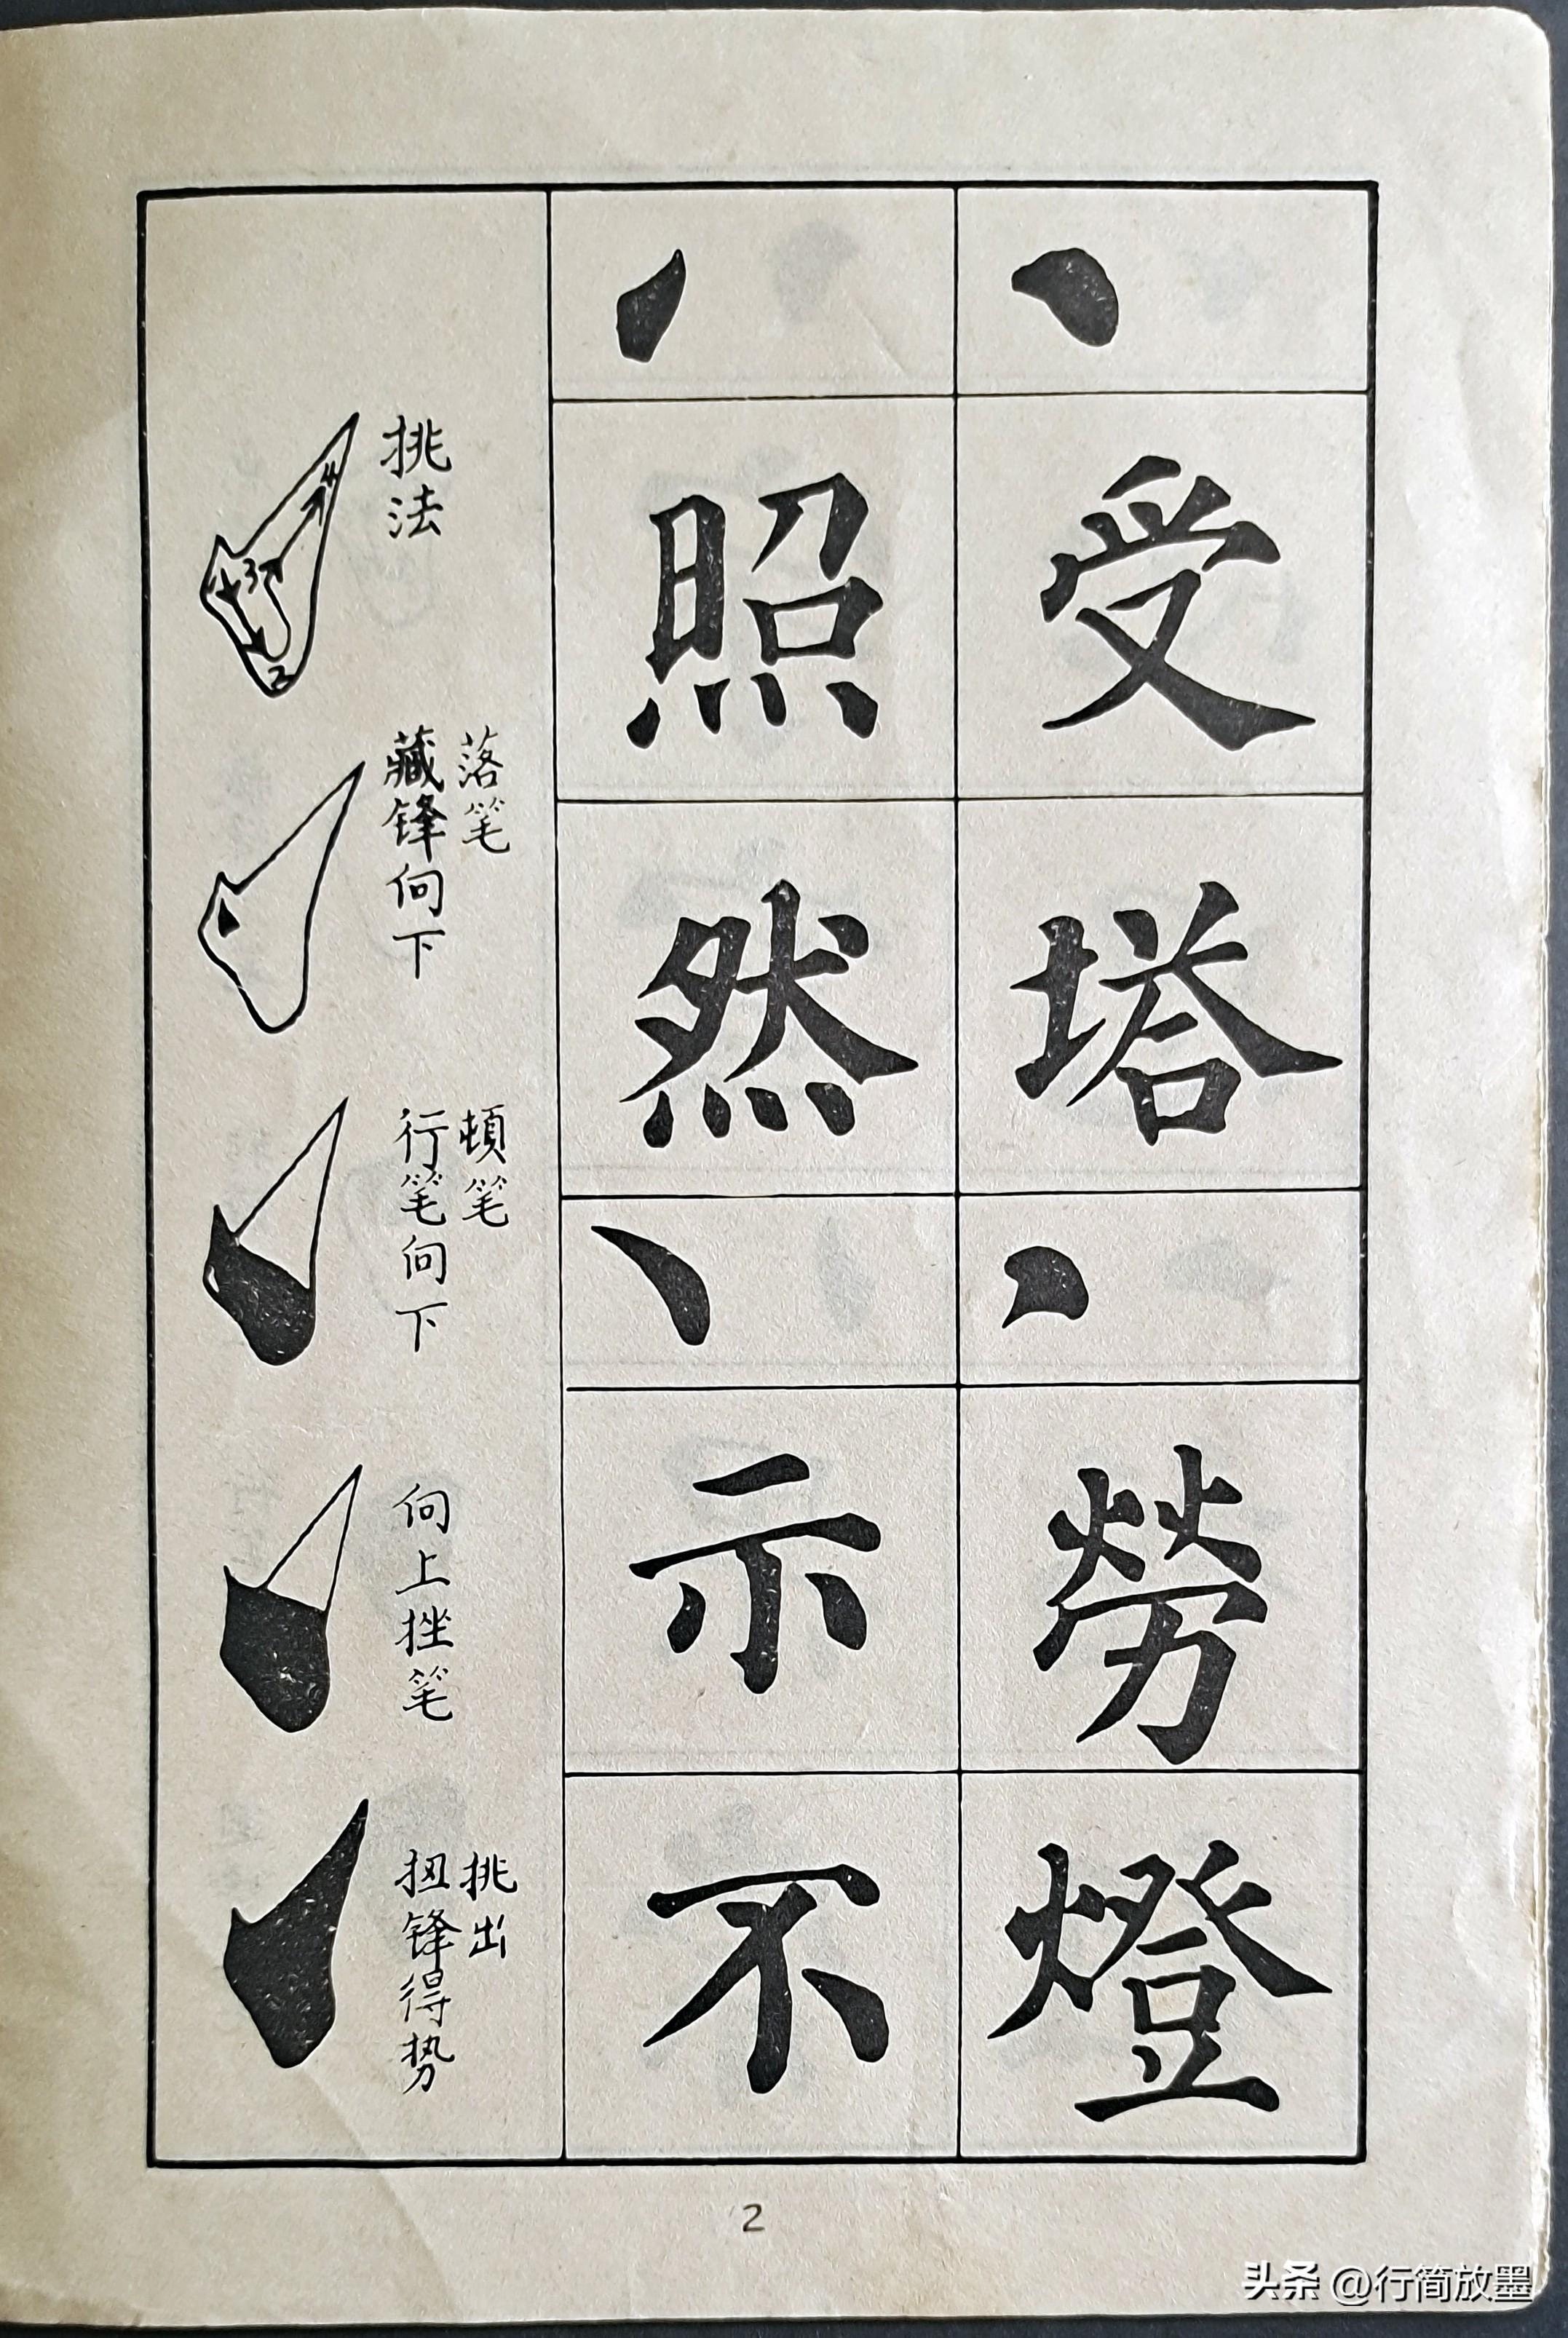 受
塔
勞
燈
照
然
示
不
挑法
落笔
藏锋向下
頓笔
行笔向下
向上挫笔
挑出
扭锋得势
2
头条 @行简放墨